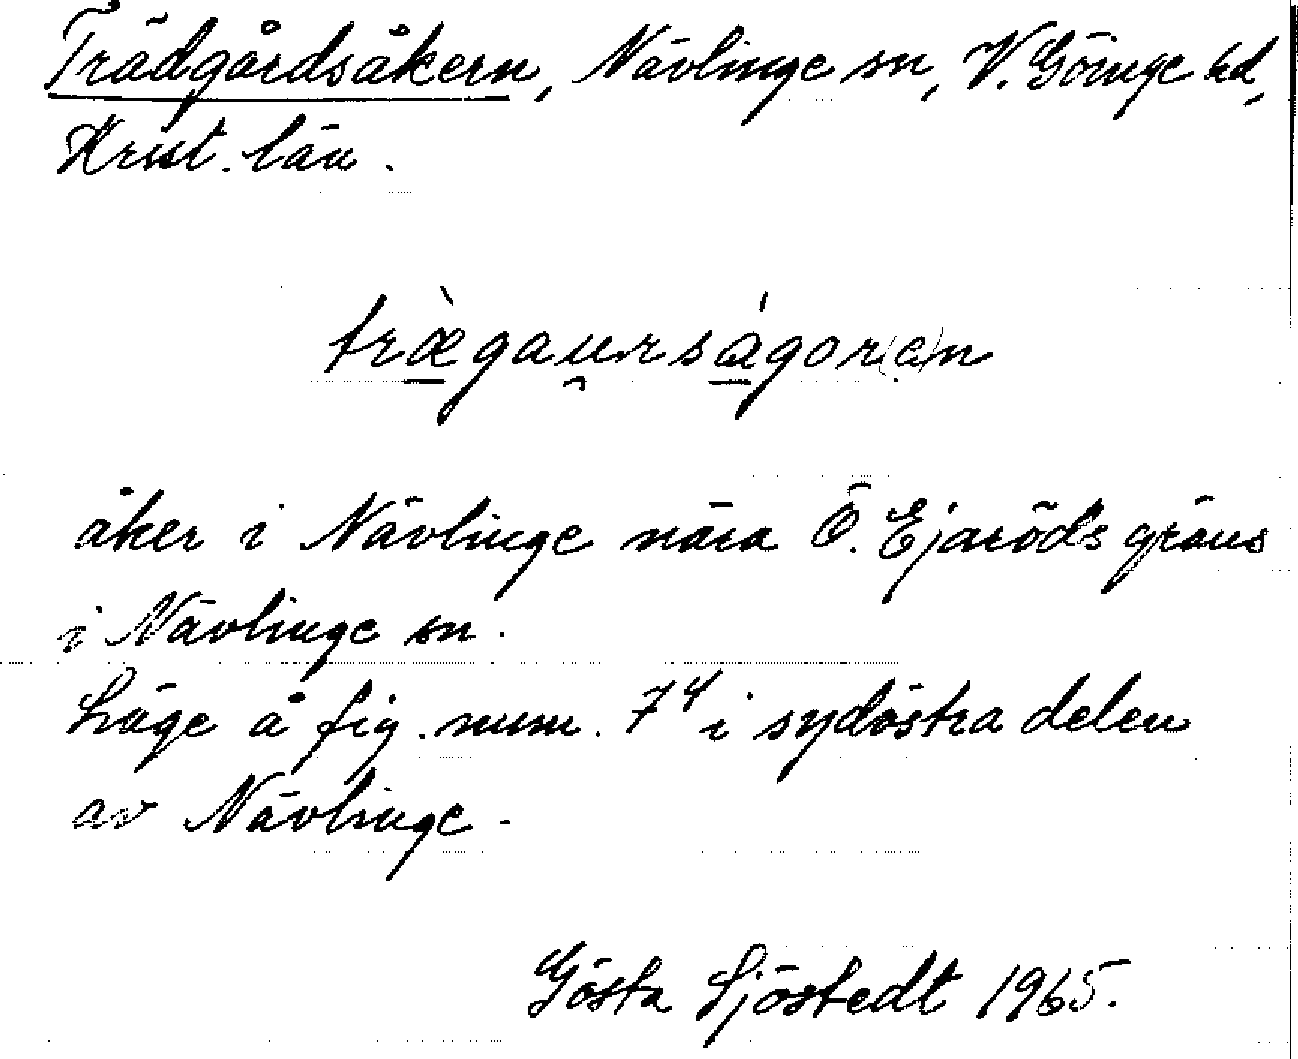 Trädgårdsåkern, Nävlinge sn, V. Göinge hd,
Krist. län.
træ̀gau̯rságor(e)n
åker i Nävlinge nära Ö. Ejaröds gräns
i Nävlinge sn.
Läge å fig. num. 74 i sydöstra delen
av Nävlinge.
Gösta Sjöstedt 1965.